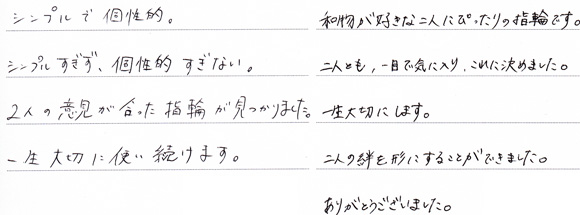 シンプルで個性的。
シンプルすぎず、個性的すぎない。
2人の意見が合った指輪が見つかりました。
一生大切に使い続けます。
和物が好きな二人にぴったりの指輪です。
二人とも、一目で気に入り、これに決めました。
一生大切にします。
二人の絆を形にすることができました。
ありがとうございました。